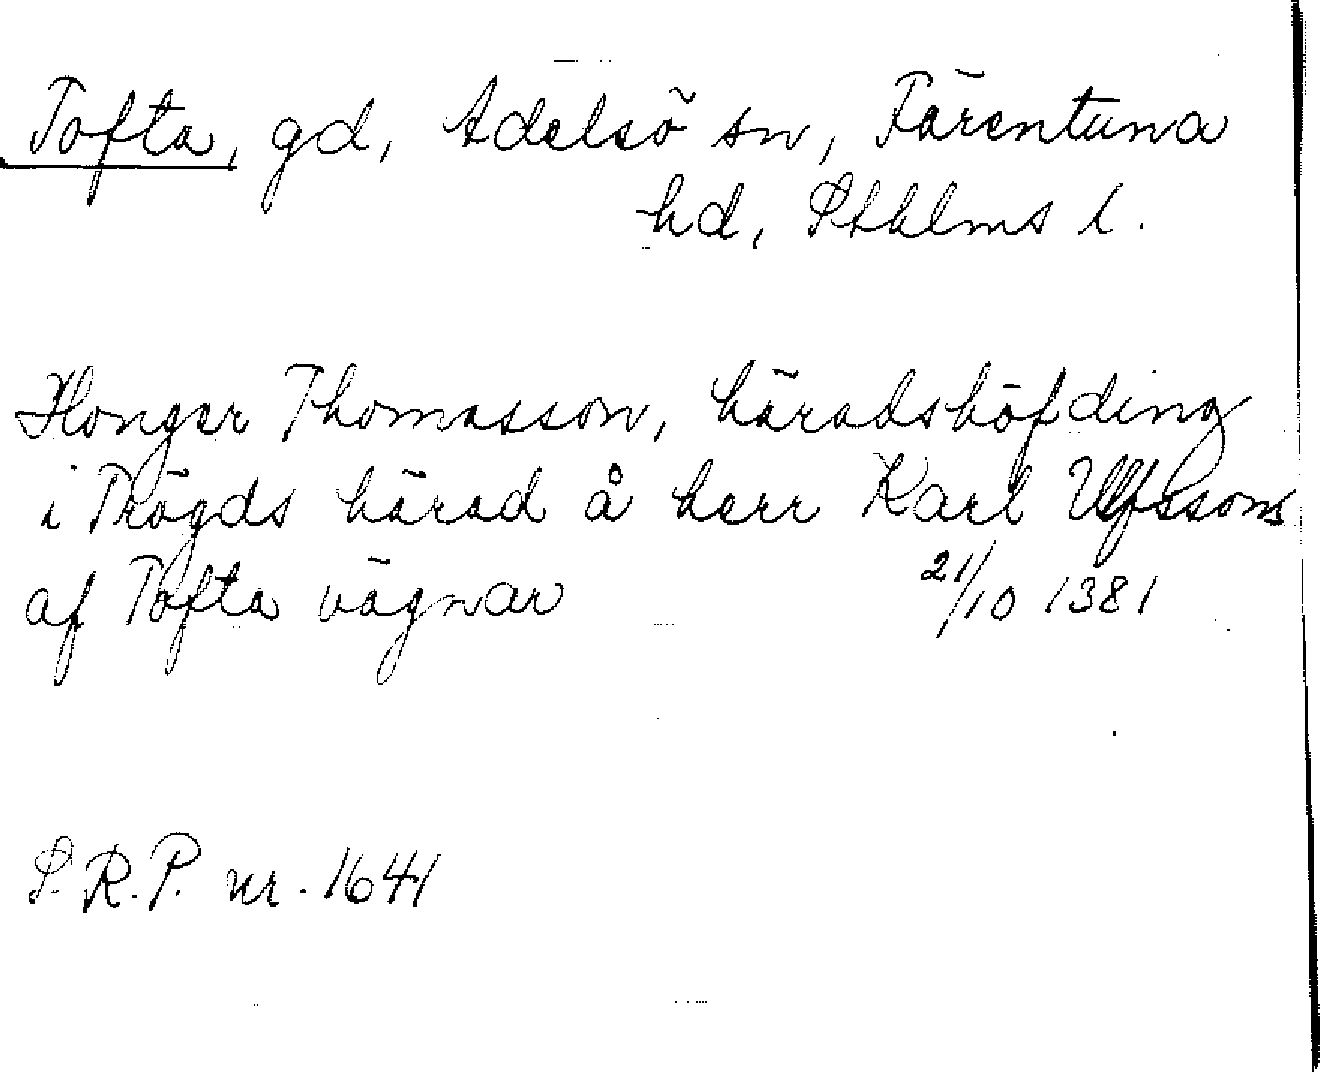 Tofta, gd, Adelsö sn, Färentuna
hd, Sthlms l.
Honger Thomasson, häradshöfding
i Trögds härad å herr Karl Ulfssons
af Tofta vägnar 21/10 1381
S.R.P. nr. 1641